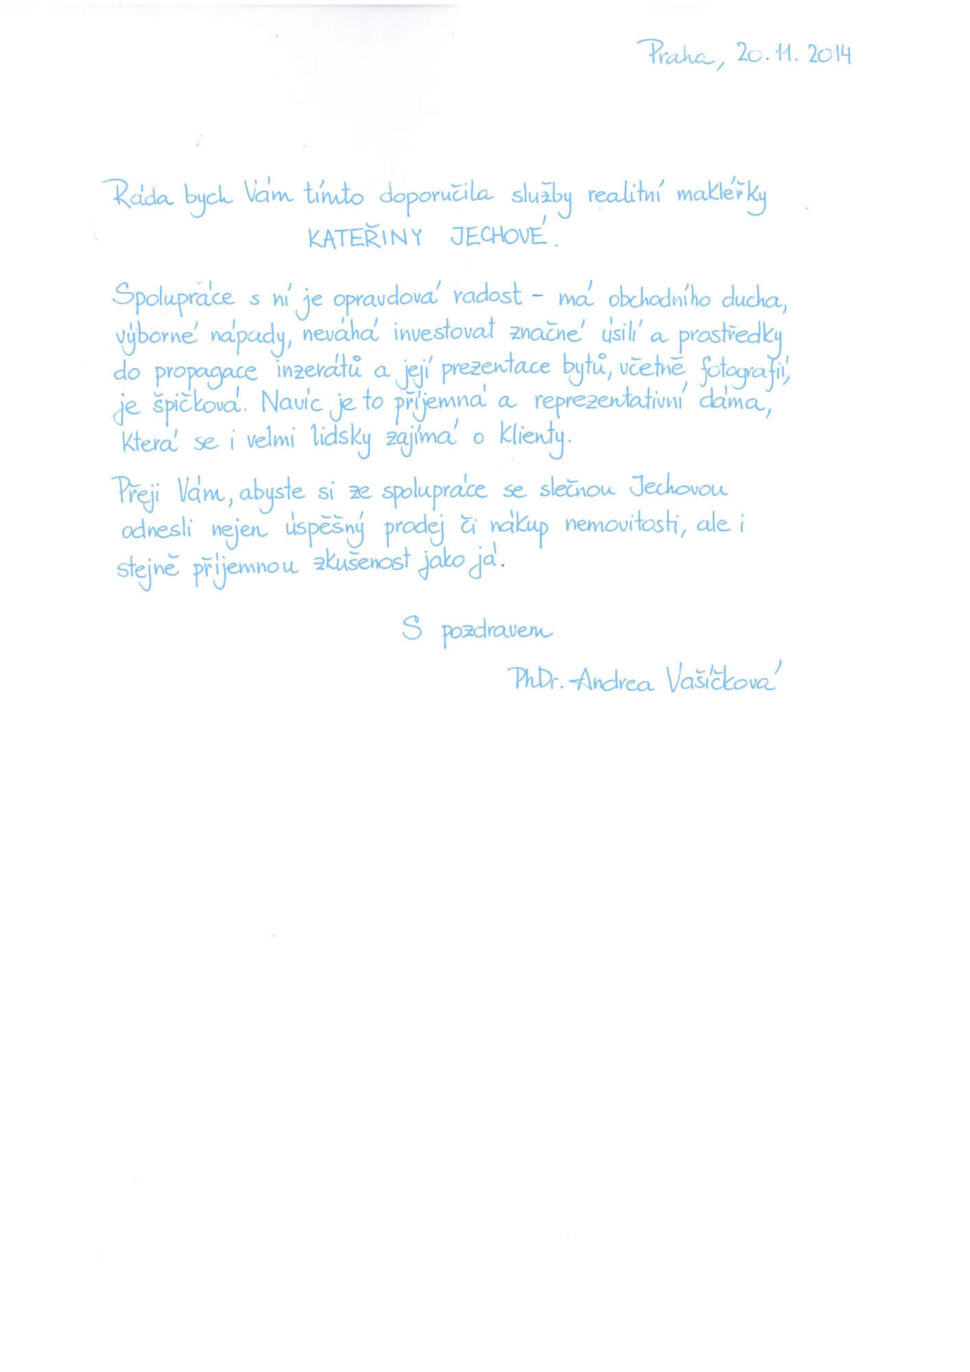 Praha, 20.11.2014
Ráda bych Vám tímto doporučila služby realitní makléřky
KATEŘINY JECHOVÉ.
Spolupráce s ní je opravdová radost - má obchodního ducha,
výborné nápady, neváhá investovat značné úsilí a prostředky
do propagace inzerátů a její prezentace bytů, včetně fotografií,
je špičková. Navíc je to příjemná a reprezentativní dáma,
která se i velmi lidsky zajímá o klienty.
Přeji Vám, abyste si ze spolupráce se slečnou Jechovou
odnesli nejen úspěšný prodej či nákup nemovitosti, ale i
stejně příjemnou zkušenost jako já.
S pozdravem
PhDr. Andrea Vašíčková